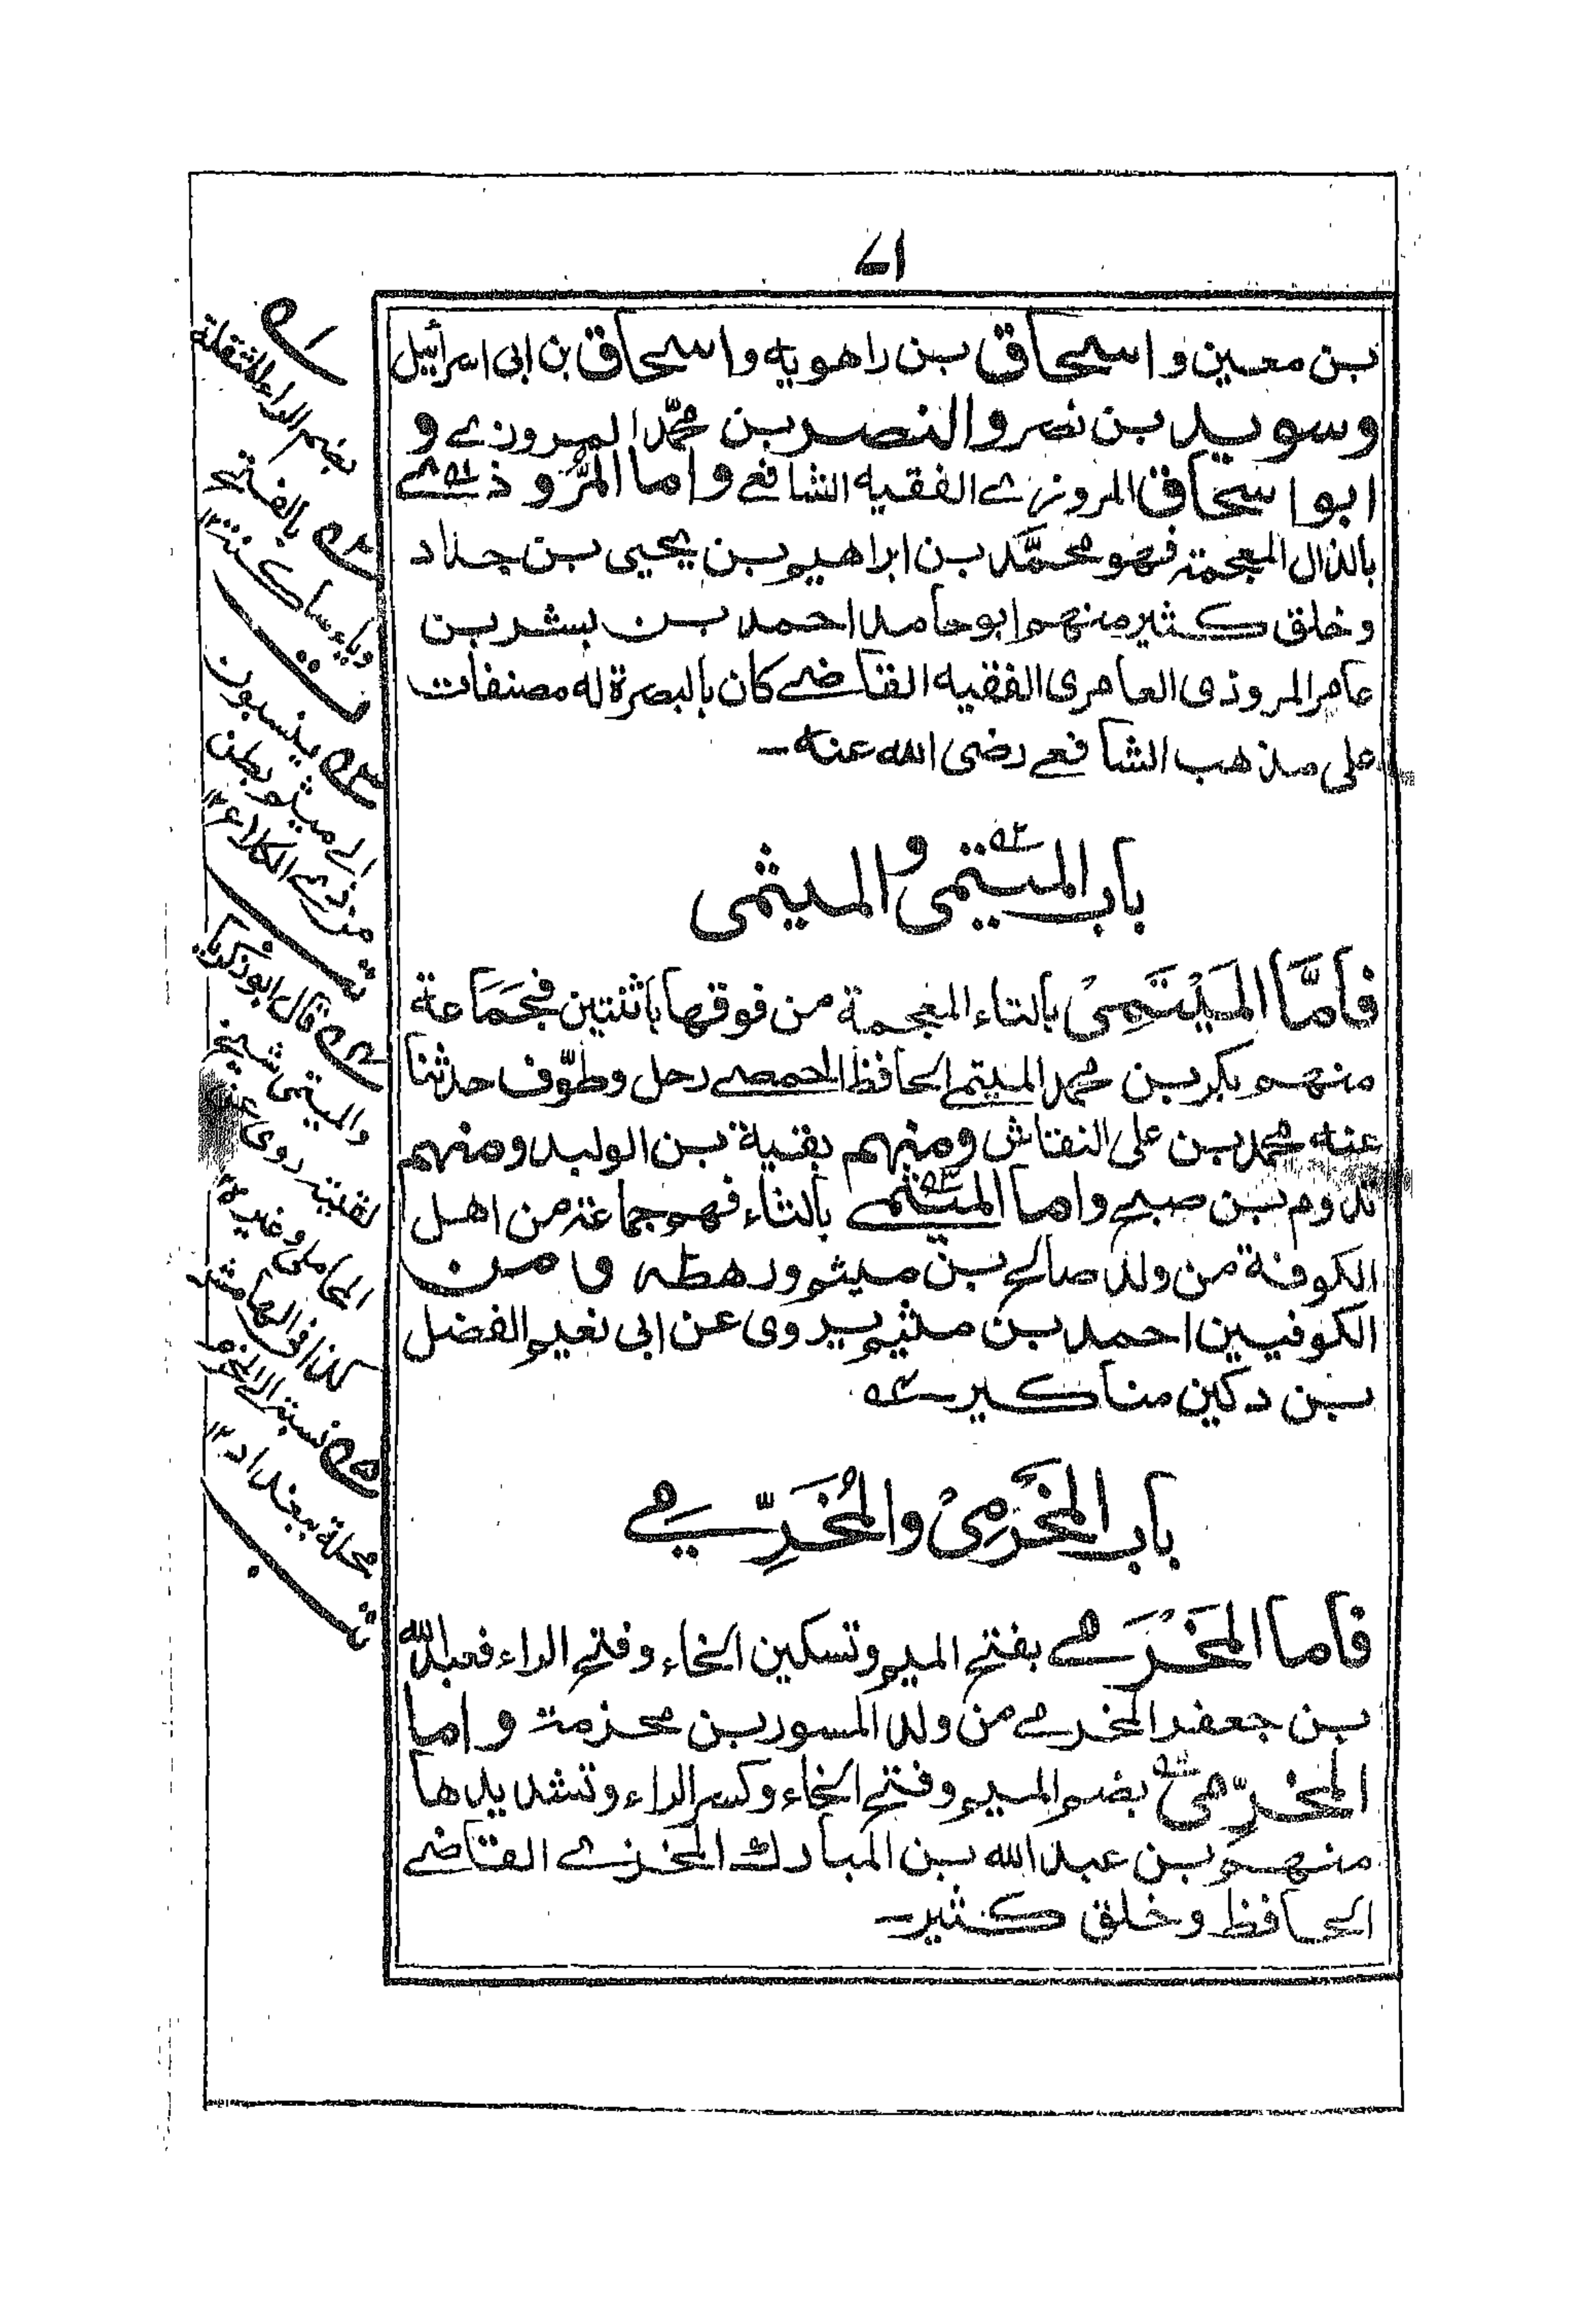 ٧١
بن معين و اسحاق بن راهويه و اسحاق بن ابى اسرأييل
وسويد بن نصر و النصر بن محمّد المروزے و
ابو اسحاق المروزے الفقيه الشافعے و اما المرُّوذے
بالذال المعجمة فهو محمَّد بن ابراهيم بن يحيى بن جناد
وخلق كثير منهم ابو حامد احمد بن بشر بن
عامر المروذى العامرى الفقيه القاضے كان بالبصرة له مصنفات
على مذهب الشافعے رضى الله عنه -
باب الميتمى و الميثمى
فامَّا الميْتَمِىْ بالتاء المعجمة من فوقها باثنتين فجَمَاعة
منهم بكر بن محمد الميتمے الحافظ الحمصے رحل وطوّف حدثنا
عنه محمد بن على النقاش ومنهم بقية بن الوليد ومنهم
تدوم بن صبيح واما الميثمے بالثاء فهو جماعة من اهل
الكوفة من ولد صالح بن ميثم ورهطه و من
الكوفيين احمد بن ميثم يروى عن ابى نعيم الفضل
بن دكين مناكير -
باب المخْرَمِىْ والمُخَرِّمے
فاما المَخْرَمے بفتح الميم وتسكين الخاء وفتح الراء فعبد الله
بن جعفر المخرمے من ولد المسور بن مخرمة و اما
المخرّمى بضم الميم وفتح الخاء وكسر الراء وتشديدها
منهم بن عبد الله بن المبارك المخرمے القاضے
الحافظ وخلق كثير -
بضم الراء المثقلة
بالفتح
وياء ساكنة ١٢
ينسبون
الے ميثم بطن
من ذے الكلاع ١٢
قال ابو زكريا
والميتمى شيخ
لقيته روى عنه
المحاملى وغيره
كذا فى الهامش
نسبة الے المخرم
محلة ببغداد ١٢